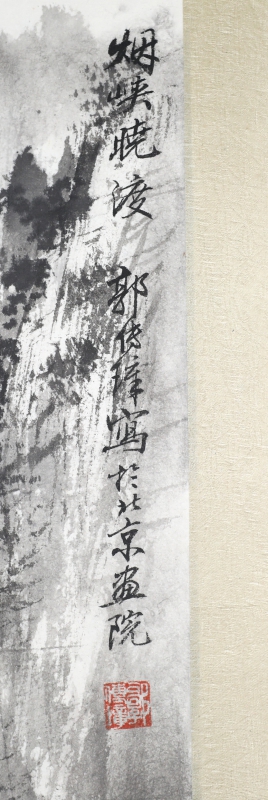 烟峡晓渡 郭传璋寫於北京画院
郭传璋